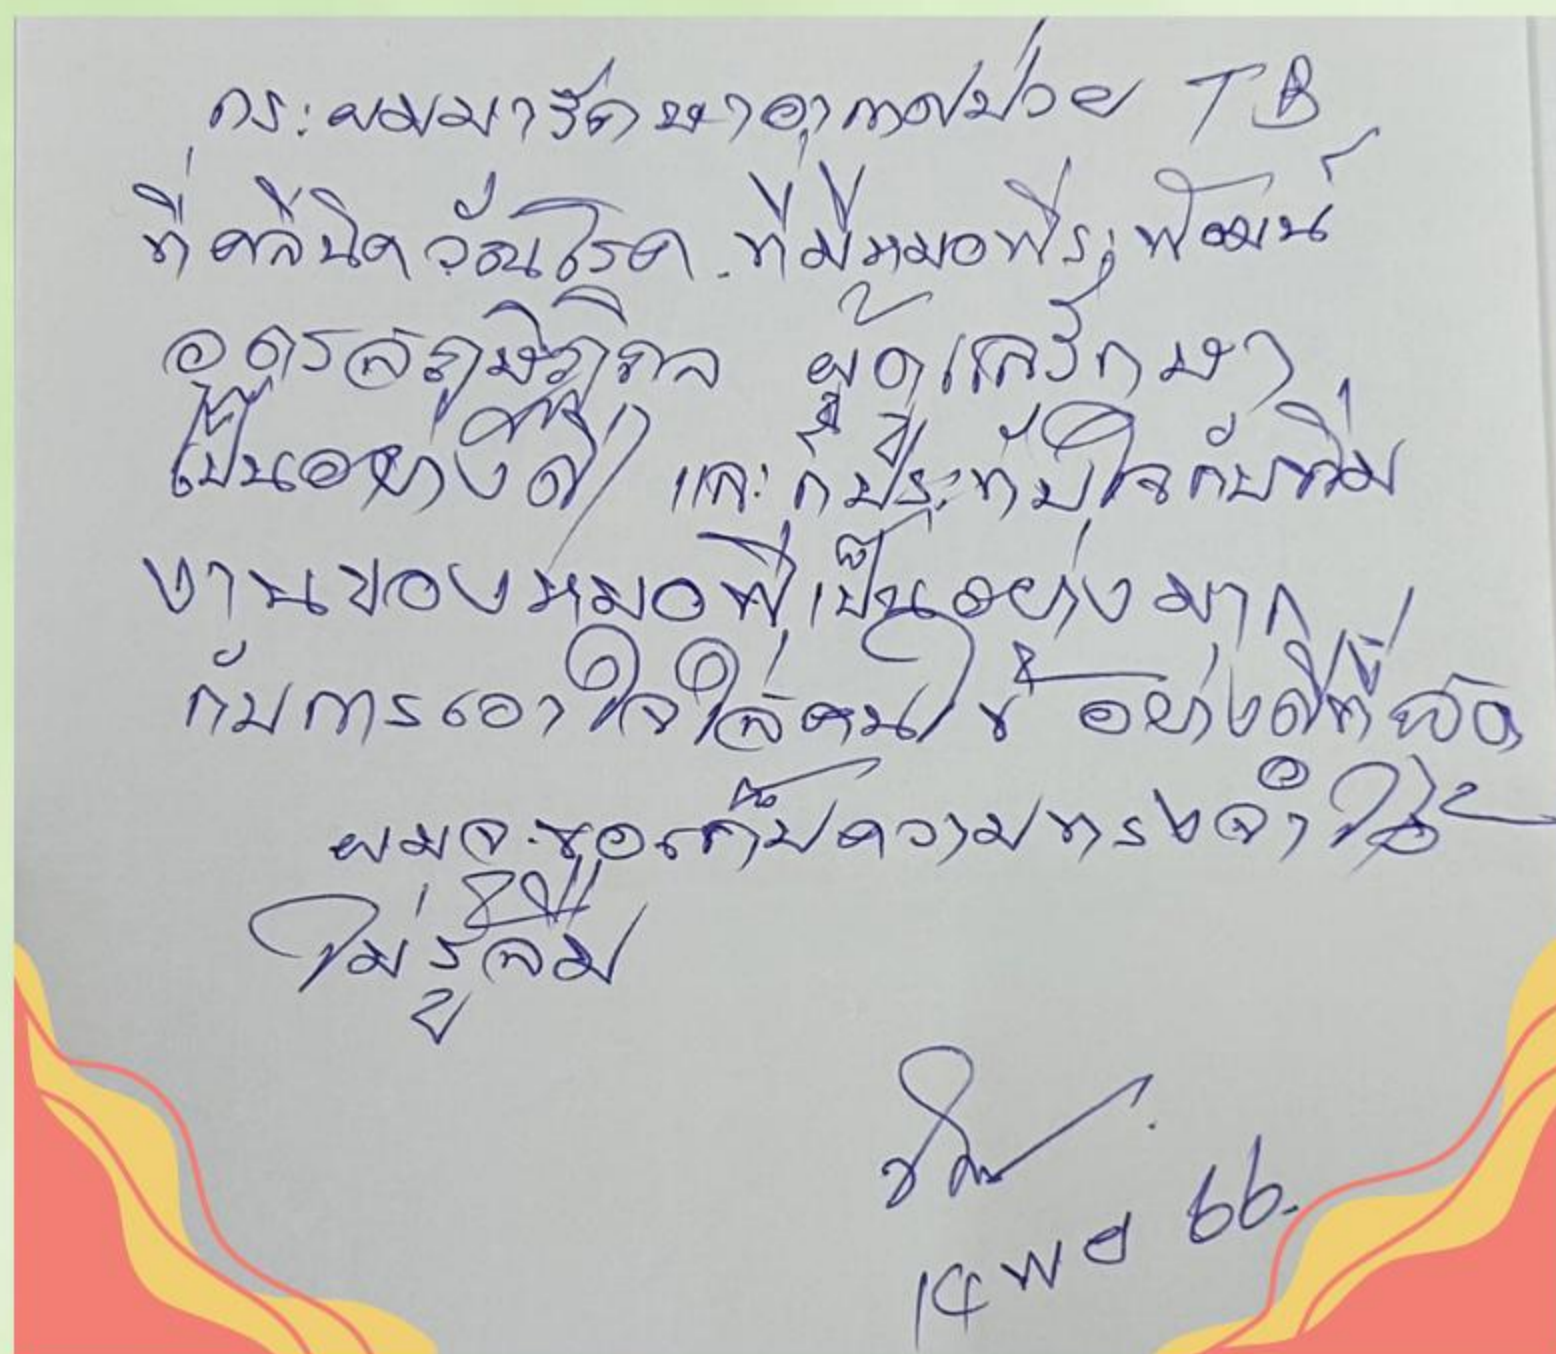 กระผมมารักษาอาการป่วย TB
ที่คลีนิควัณโรค ที่มีหมอพีระพัฒน์
ผู้ดูแลรักษา
เป็นอย่างดี และก็ประทับใจกับทีม
งานของหมอพีเป็นอย่างมาก
กับการเอาใจใส่คนไข้ อย่างดีที่สุด
ผมจะขอเก็บความทรงจำนี้
ไม่รู้ลืม
14 พย 66.